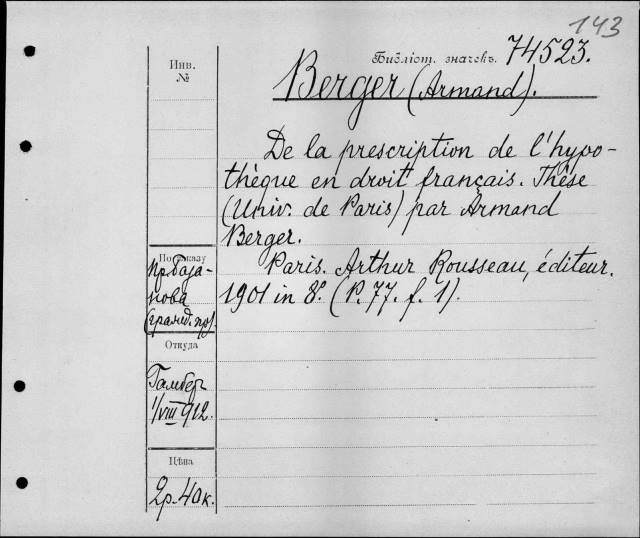 143
Библіот. значекъ. 74523.
Инв.
№
Berger (Armand).
De la prescription de l'hypo-
thèque en droit français. Thèse
(Univ. de Paris) par Armand
Berger.
Paris. Arthur Rousseau, éditeur.
1901 in 8º. (P. 77. f. 1).
По заказу
нова
Откуда
1/VIII 912.
Цѣна
2р. 40к.